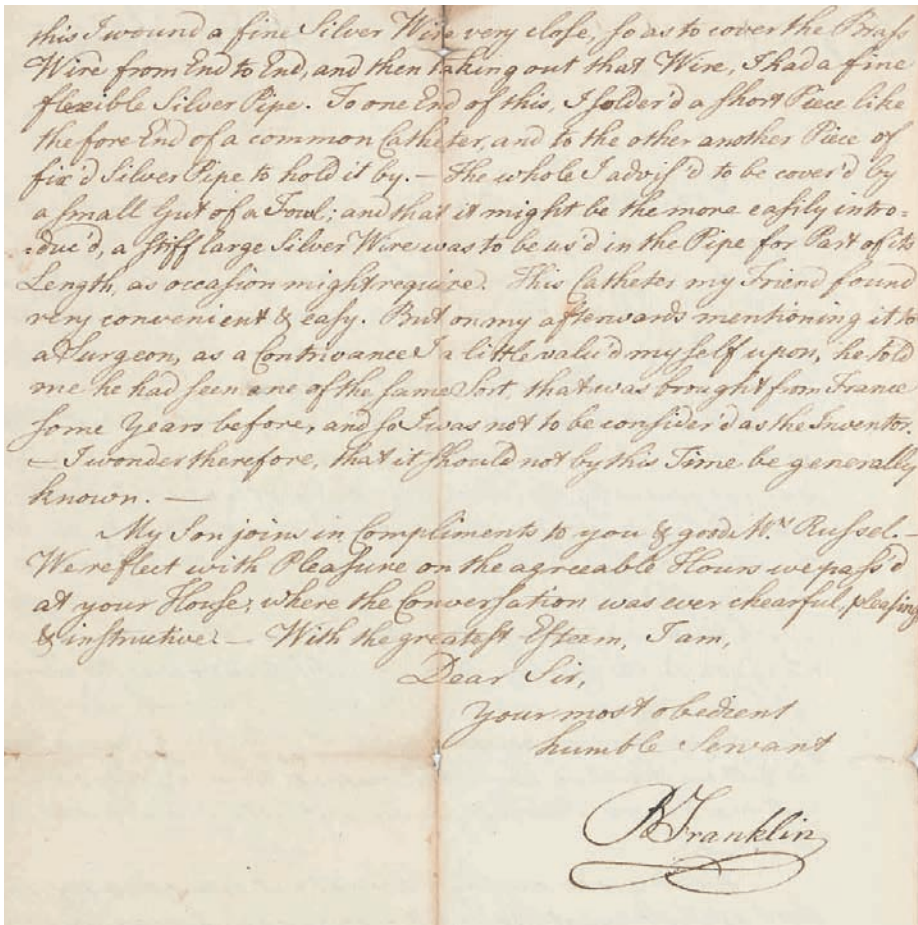 this I wound a fine Silver Wire very close, so as to cover the Brass
Wire from End to End, and then taking out that Wire, I had a fine
flexible Silver Pipe. To one End of this, I solder'd a short Piece like
the fore End of a common Catheter, and to the other another Piece of
fix'd Silver Pipe to hold it by. — The whole I advis'd to be cover'd by
a small Gut of a Fowl; and that it might be the more easily intro=
=duc'd, a stiff large Silver Wire was to be us'd in the Pipe for Part of its
Length, as occasion might require. This Catheter my Friend found
very convenient & easy. But on my afterwards mentioning it to
a Surgeon, as a Contrivance I a little valu'd myself upon, he told
me he had seen one of the same Sort, that was brought from France
some Years before, and so I was not to be consider'd as the Inventor.
— I wonder therefore, that it should not by this Time be generally
known. —
My Son joins in Compliments to you & good Mrs. Russel. —
We reflect with Pleasure on the agreeable Hours we pass'd
at your House; where the Conversation was ever chearful, pleasing
& instructive. — With the greatest Esteem, I am,
Dear Sir,
Your most obedient
humble Servant
B Franklin